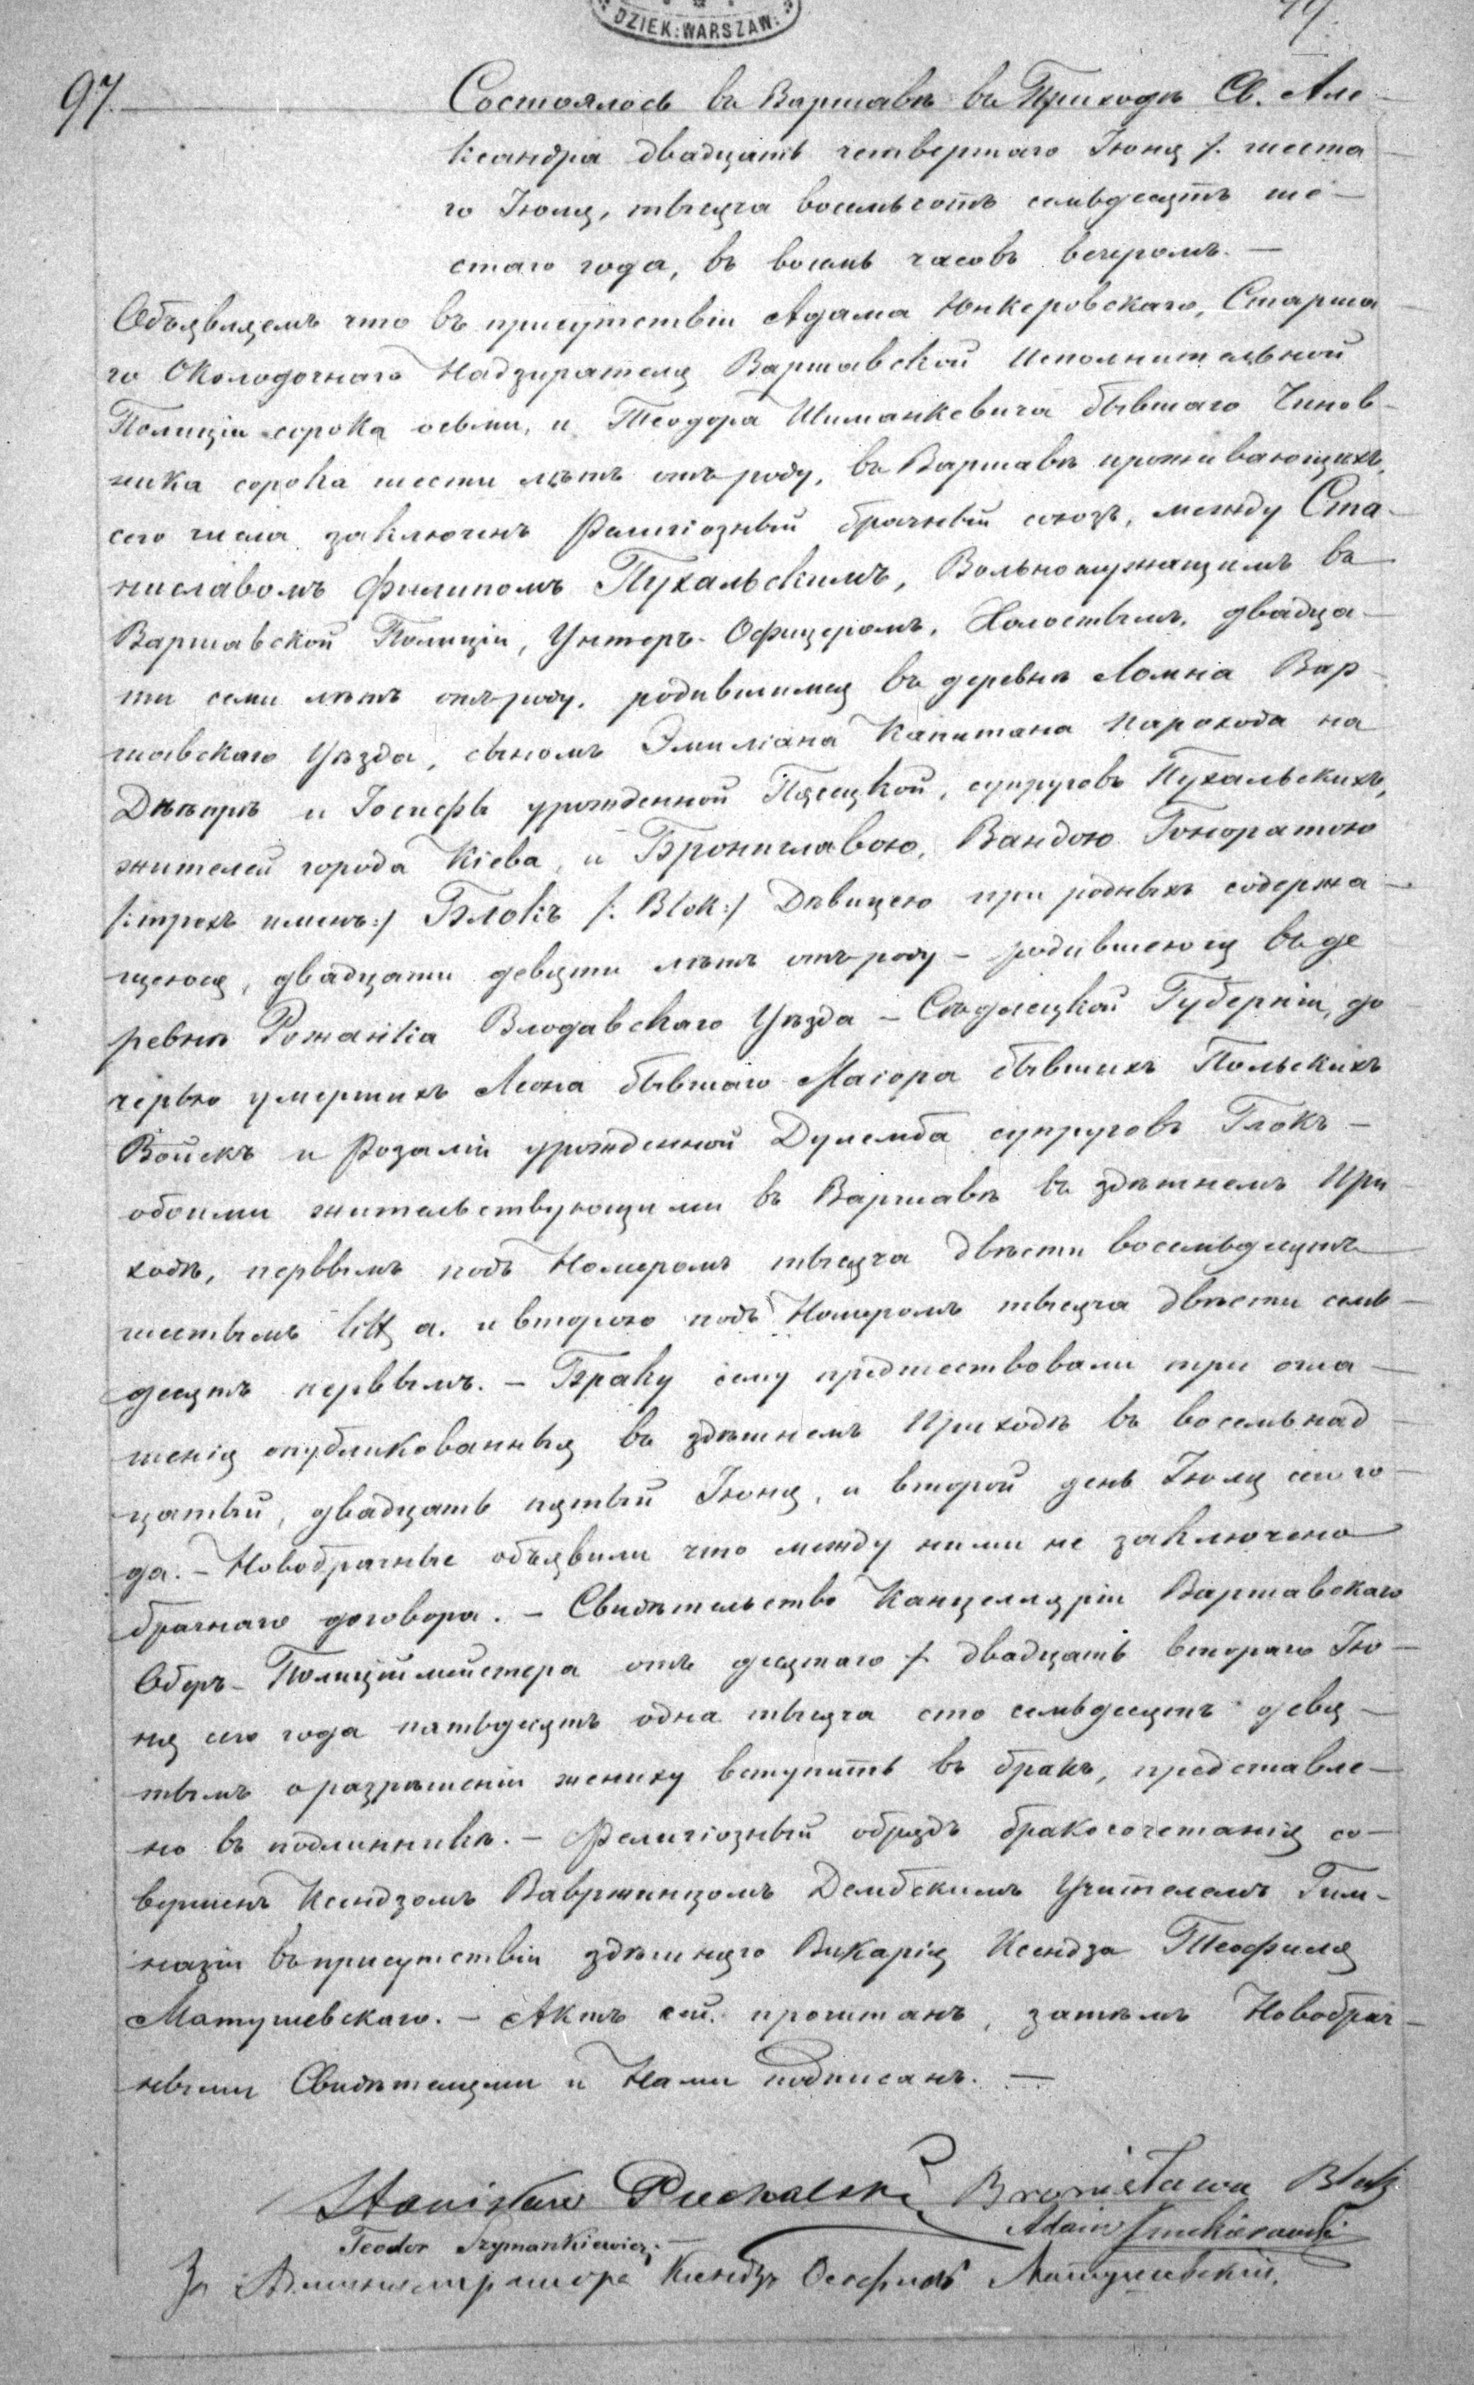 DZIEK: WARSZAW:
97.
Состоялось въ Варшавѣ въ Приходѣ Св. Але-
ксандра двадцать четвертаго Іюня /: шеста
го Іюля, тысяча восемьсотъ семьдесятъ ше-
стаго года, въ восемь часовъ вечеромъ. —
Объявляемъ что въ присутствіи Адама Юнкеровскаго, Старша
го Околодочнаго Надзирателя Варшавской Исполнительной
Полиціи сорока осьми, и Теодора Шиманкевича бывшаго Чинов-
ника сорока шести лѣтъ отъ роду, въ Варшавѣ проживающихъ,
сего числа заключенъ Религіозный брачный союзъ, между Ста-
ниславомъ Филипомъ Пухальскимъ, Вольнослужащимъ въ
Варшавской Полиціи, Унтеръ-Офицеромъ, Холостымъ, двадца-
ти семи лѣтъ отъ роду, родившимся въ деревнѣ Ломна Вар-
шавскаго Уѣзда, сыномъ Эмиліана Капитана Парохода на
Днѣпрѣ и Іосифы урожденной Пясецкой, супруговъ Пухальскихъ,
жителей города Кіева, и Брониславою, Вандою Гоноратою
/: трехъ именъ :/ Блокъ /: Blok :/ Дѣвицею при родныхъ содержа-
щеюся, двадцати девяти лѣтъ отъ роду - родившеюся въ де
ревнѣ Рожанка Влодавскаго Уѣзда - Сѣдлецкой Губерніи, до
черью умершихъ Леона бывшаго Маіора бывшихъ Польскихъ
Войскъ и Розаліи урожденной Дулемба супруговъ Блокъ -
обоими жительствующими въ Варшавѣ въ здѣшнемъ При
ходѣ, первымъ подъ Номеромъ тысяча двѣсти восемьдесятъ
шестымъ litt a. и второю подъ Номеромъ тысяча двѣсти семь-
десятъ первымъ. - Браку сему предшествовали три огла-
шенія опубликованныя въ здѣшнемъ Приходѣ въ восемьнад-
цатый, двадцать пятый Іюня, и второй день Іюля сего го-
да. - Новобрачные объявили что между ними не заключено
брачнаго договора. - Свидѣтельство Канцеляріи Варшавскаго
Оберъ-Полиціймейстера отъ десятаго /: двадцать втораго Ію-
ня сего года пятьдесятъ одна тысяча сто семьдесятъ девя-
тымъ о разрѣшеніи жениху вступить въ бракъ, представле-
но въ подлинникѣ. - Религіозный обрядъ бракосочетанія со-
вершенъ Ксендзомъ Вавржинцомъ Дембскимъ Учителемъ Гим-
назіи въ присутствіи здѣшняго Викарія Ксендза Теофиля
Матушевскаго. - Актъ сей прочитанъ, затѣмъ Новобрач-
ными Свидѣтелями и Нами подписанъ. —
Stanisław Puchalski Bronisława Blok
Teodor Szymankiewicz. Adam
За Администратора Ксендзъ Ѳеофилъ Матушевскій.